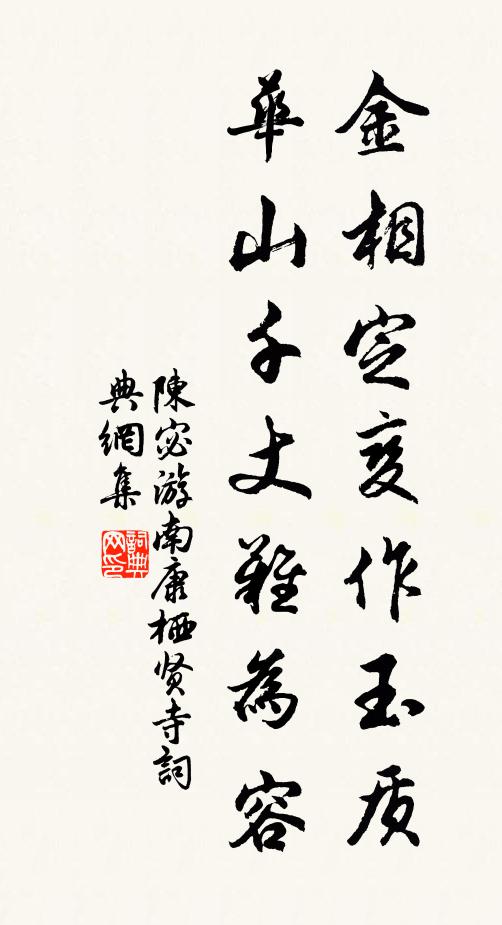 金相定变作玉质
華山千丈難為容
陳宓游南康栖贤寺詞
典網集
詞典
网印